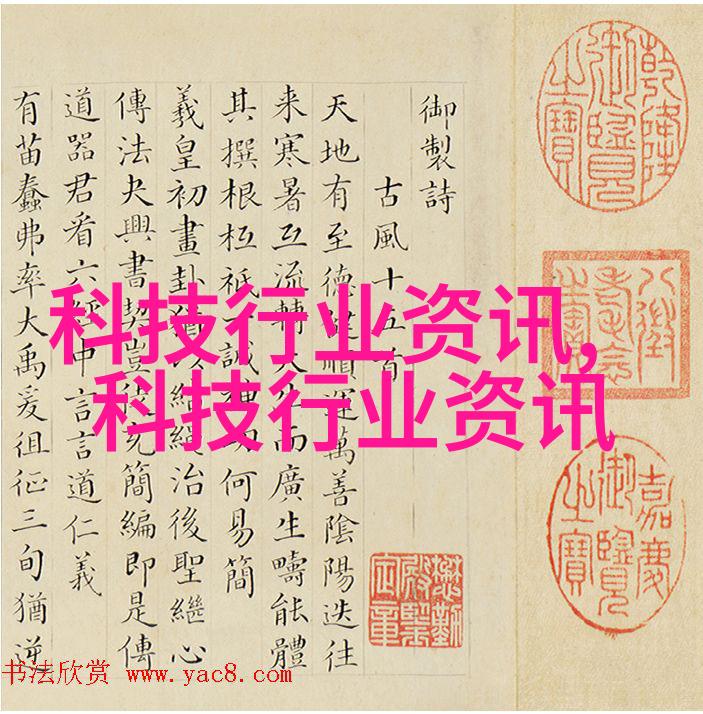 御製詩
古風十五首
天地有至德健順運萬善陰陽迭往
来寒暑互流轉大生而廣生疇能體
其撰根柢祗一誠神功何易簡
羲皇初畫卦猶以結繩治後聖繼心
傳法夬興書契豈致充簡編即是傳
道器君看六經中言言道仁義
有苗蠢弗率大禹爰徂征三旬猶逆
乾隆御覽之寶
八徵耄念之寶
嘉慶御覽之寶
科技行业资讯,
科技行业资讯
书法欣赏 www.yac8.com